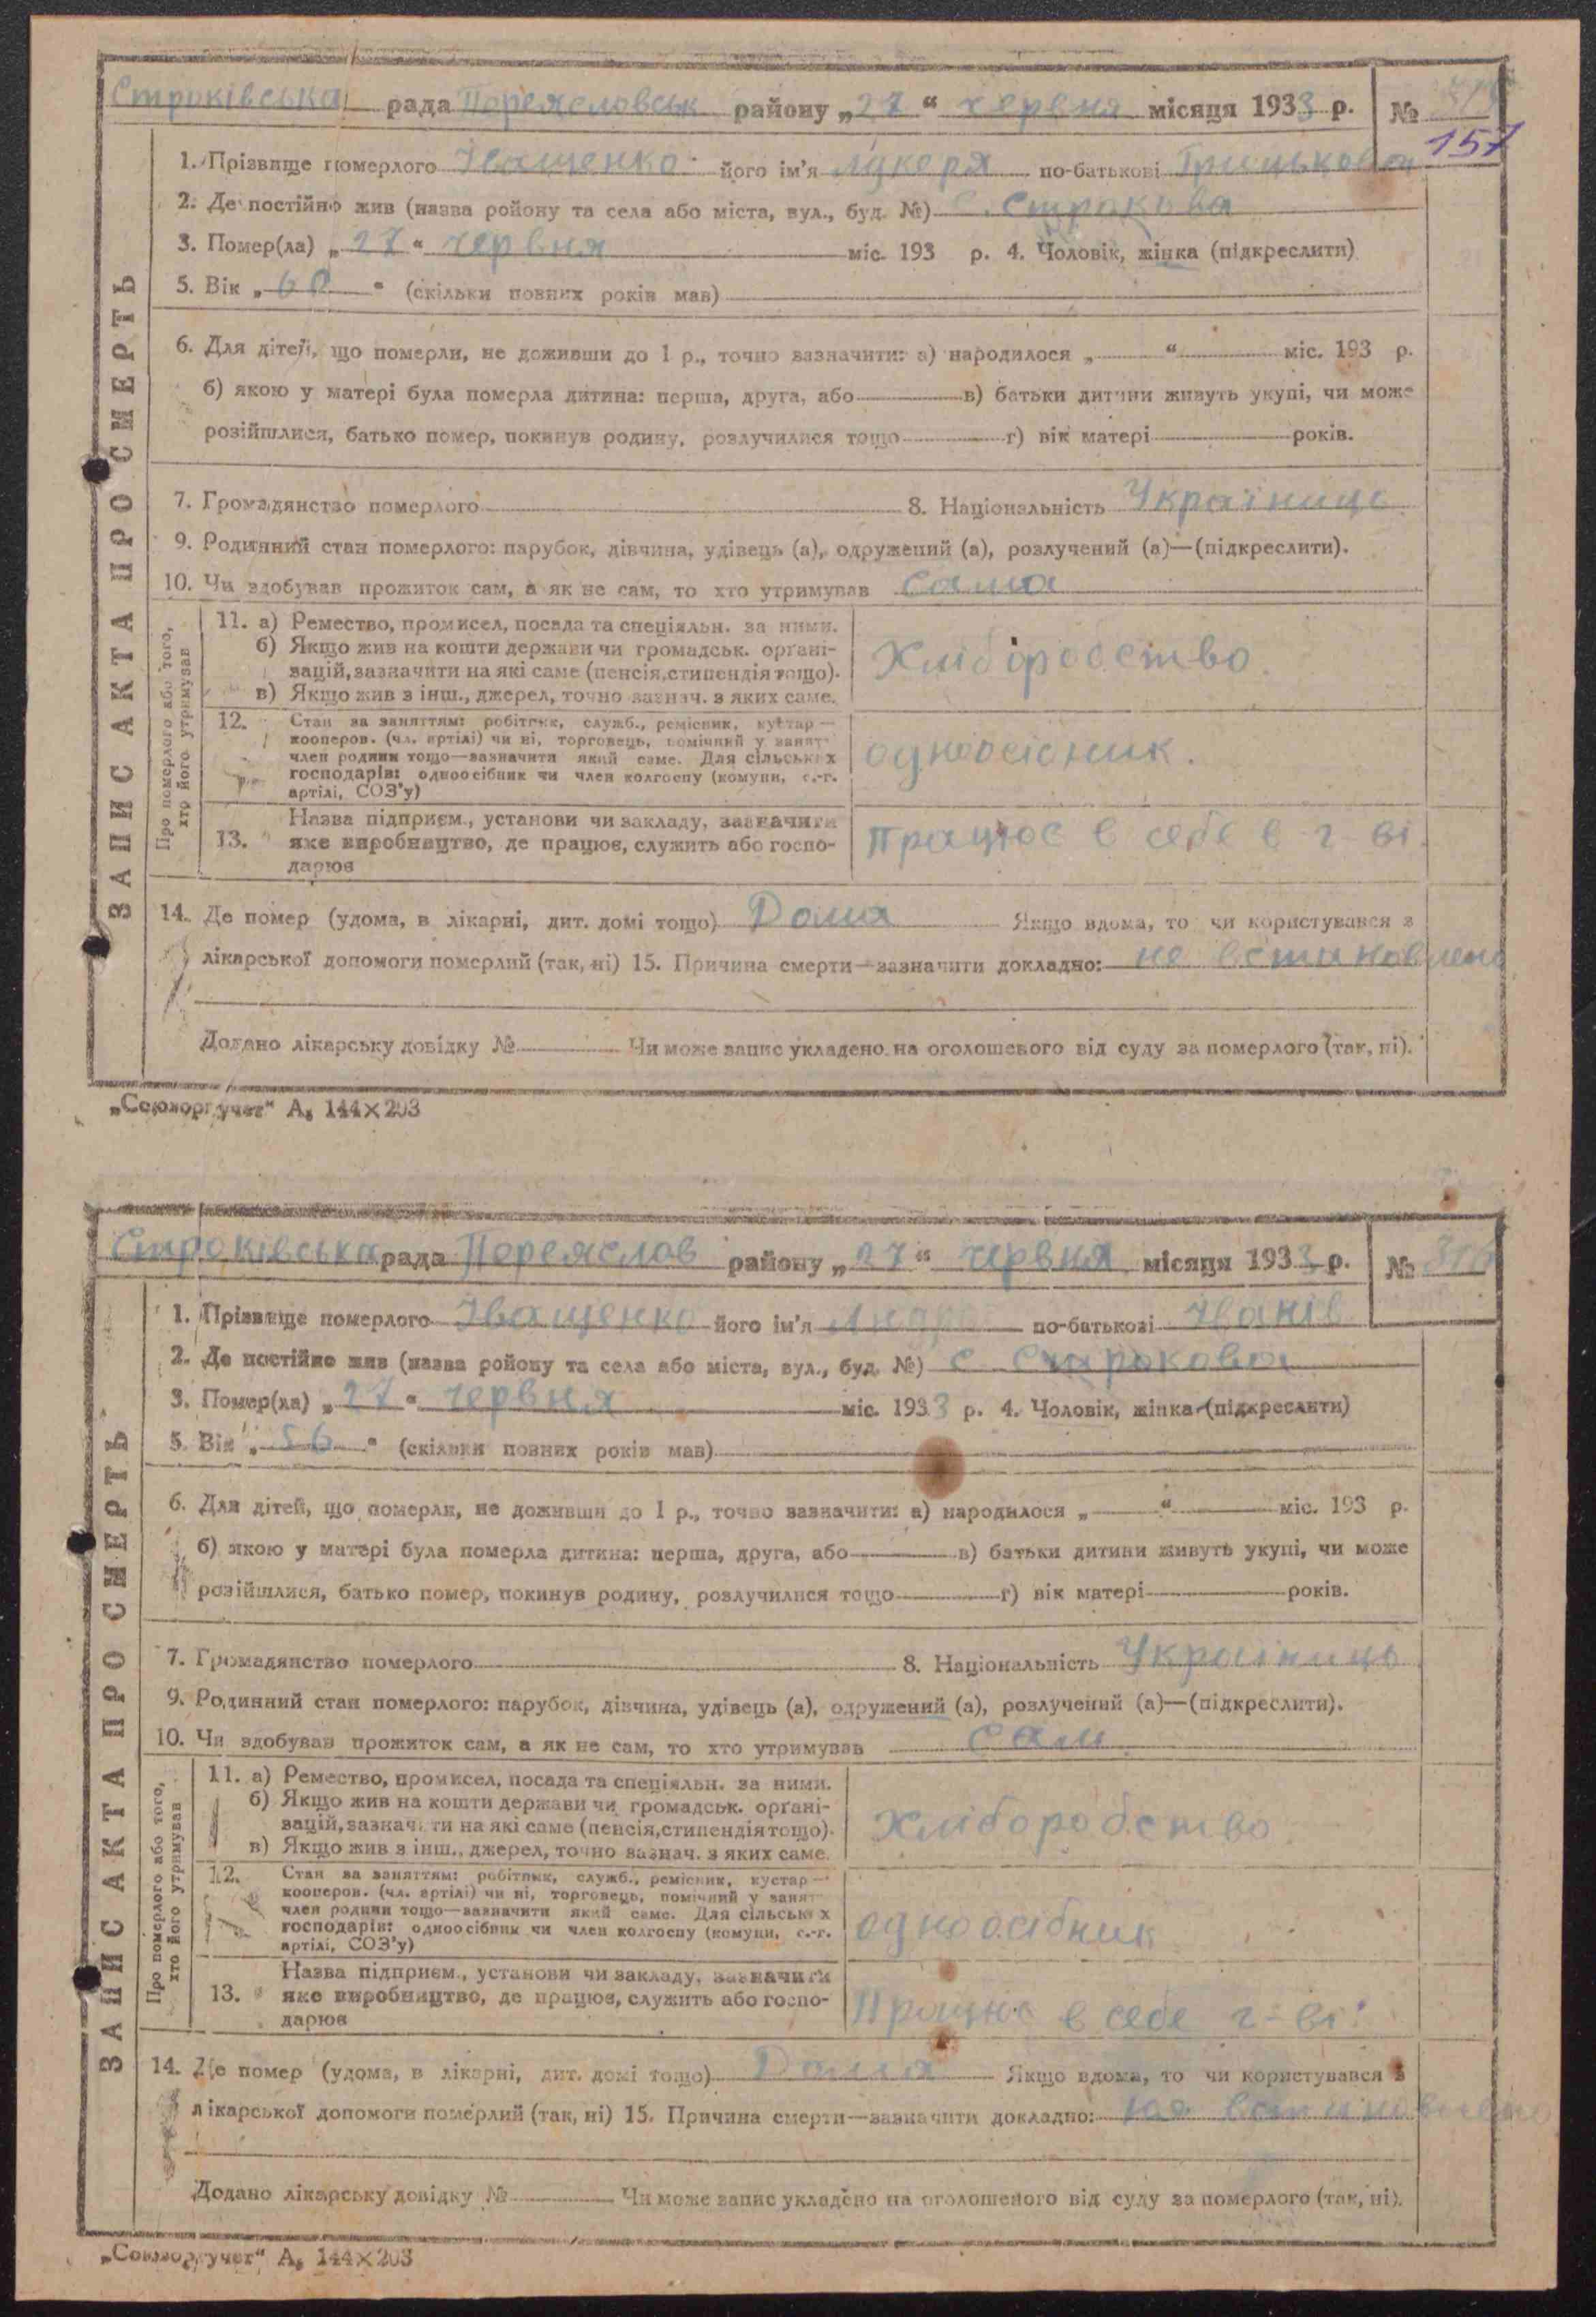 Строківська рада Переясловськ району „27“ червня місяця 1933 р. №
157
ЗАПИС АКТА ПРО СМЕРТЬ
1. Прізвище померлого Іващенко його ім'я Лукеря по-батькові Грицькова
2. Де постійно жив (назва ройону та села або міста, вул., буд. №) с. Строкова
3. Помер(ла) „27“ червня міс. 193 р. 4. Чоловік, жінка (підкреслити)
5. Вік „60“ (скільки повних років мав)
6. Для дітей, що померли, не доживши до 1 р., точно зазначити: а) народилося „ “ міс. 193 р.
б) якою у матері була померла дитина: перша, друга, або в) батьки дитини живуть укупі, чи може
розійшлися, батько помер, покинув родину, розлучилися тощо г) вік матері років.
7. Громадянство померлого 8. Національність Українице
9. Родинний стан померлого: парубок, дівчина, удівець (а), одружений (а), розлучений (а)—(підкреслити).
10. Чи здобував прожиток сам, а як не сам, то хто утримував Сама
Про померлого або того,
хто його утримував
11. а) Ремество, промисел, посада та спеціяльн. за ними.
б) Якщо жив на кошти держави чи громадськ. орґані-
зацій, зазначити на які саме (пенсія, стипендія тощо).
в) Якщо жив з інш., джерел, точно зазнач. з яких саме.
Хліборобство
12. Стан за заняттям: робітник, служб., ремісник, кустар—
кооперов. (чл. артілі) чи ні, торговець, помічний у занят
член родини тощо—зазначити який саме. Для сільських
господарів: одноосібник чи член колгоспу (комуни, с.-г.
артілі, СОЗ'у)
одноосібник.
13. Назва підприєм., установи чи закладу, зазначити
яке виробництво, де працює, служить або госпо-
дарює
Працює в себе в г-ві.
14. Де помер (удома, в лікарні, дит. домі тощо) Дома Якщо вдома, то чи користувався з
лікарської допомоги померлий (так, ні) 15. Причина смерти—зазначити докладно: не встановлено
Додано лікарську довідку № Чи може запис укладено на оголошеного від суду за померлого (так, ні).
„Союзоргучет“ А₅ 144×203
Строківська рада Переяслов району „27“ червня місяця 1933 р. № 316
ЗАПИС АКТА ПРО СМЕРТЬ
1. Прізвище померлого Іващенко його ім'я по-батькові Іванів
2. Де постійно жив (назва ройону та села або міста, вул., буд. №) с Строкова
3. Помер(ла) „27“ червня міс. 1933 р. 4. Чоловік, жінка (підкреслити)
5. Вік „56“ (скільки повних років мав)
6. Для дітей, що померли, не доживши до 1 р., точно зазначити: а) народилося „ “ міс. 193 р.
б) якою у матері була померла дитина: перша, друга, або в) батьки дитини живуть укупі, чи може
розійшлися, батько помер, покинув родину, розлучилися тощо г) вік матері років.
7. Громадянство померлого 8. Національність Україниць
9. Родинний стан померлого: парубок, дівчина, удівець (а), одружений (а), розлучений (а)—(підкреслити).
10. Чи здобував прожиток сам, а як не сам, то хто утримував сам
Про померлого або того,
хто його утримував
11. а) Ремество, промисел, посада та спеціяльн. за ними.
б) Якщо жив на кошти держави чи громадськ. орґані-
зацій, зазначити на які саме (пенсія, стипендія тощо).
в) Якщо жив з інш., джерел, точно зазнач. з яких саме.
Хліборобство
12. Стан за заняттям: робітник, служб., ремісник, кустар—
кооперов. (чл. артілі) чи ні, торговець, помічний у занят
член родини тощо—зазначити який саме. Для сільських
господарів: одноосібник чи член колгоспу (комуни, с.-г.
артілі, СОЗ'у)
одноосібник
13. Назва підприєм., установи чи закладу, зазначити
яке виробництво, де працює, служить або госпо-
дарює
Працює в себе г-ві.
14. Де помер (удома, в лікарні, дит. домі тощо) Дома Якщо вдома, то чи користувався з
лікарської допомоги померлий (так, ні) 15. Причина смерти—зазначити докладно: не встановлено
Додано лікарську довідку № Чи може запис укладено на оголошеного від суду за померлого (так, ні).
„Союзоргучет“ А₅ 144×203